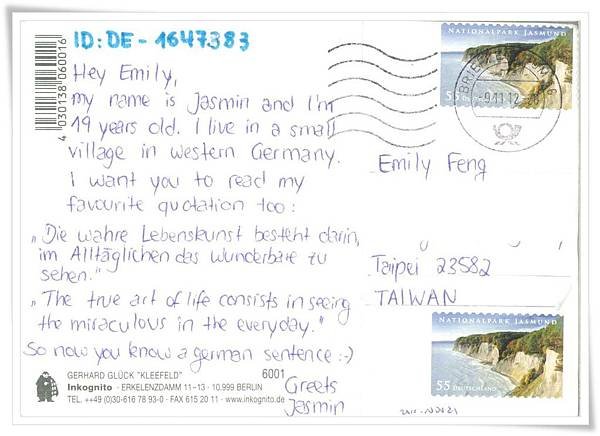 ID: DE - 1647383
Hey Emily,
my name is Jasmin and I'm
19 years old. I live in a small
village in western Germany.
I want you to read my
favourite quotation too:
„Die wahre Lebenskunst besteht darin,
im Alltäglichen das Wunderbare zu
sehen."
„The true art of life consists in seeing
the miraculous in the everyday."
So now you know a german sentence :-)
Greets
Jasmin
GERHARD GLÜCK "KLEEFELD"
6001
Inkognito · ERKELENZDAMM 11–13 · 10.999 BERLIN
TEL. ++49 (0)30-616 78 93-0 · FAX 615 20 11 · www.inkognito.de
4 030138 060016
NATIONALPARK JASMUND
55
BRIEF
-9.11.12
Emily Feng
Taipei 23582
TAIWAN
NATIONALPARK JASMUND
55 DEUTSCHLAND